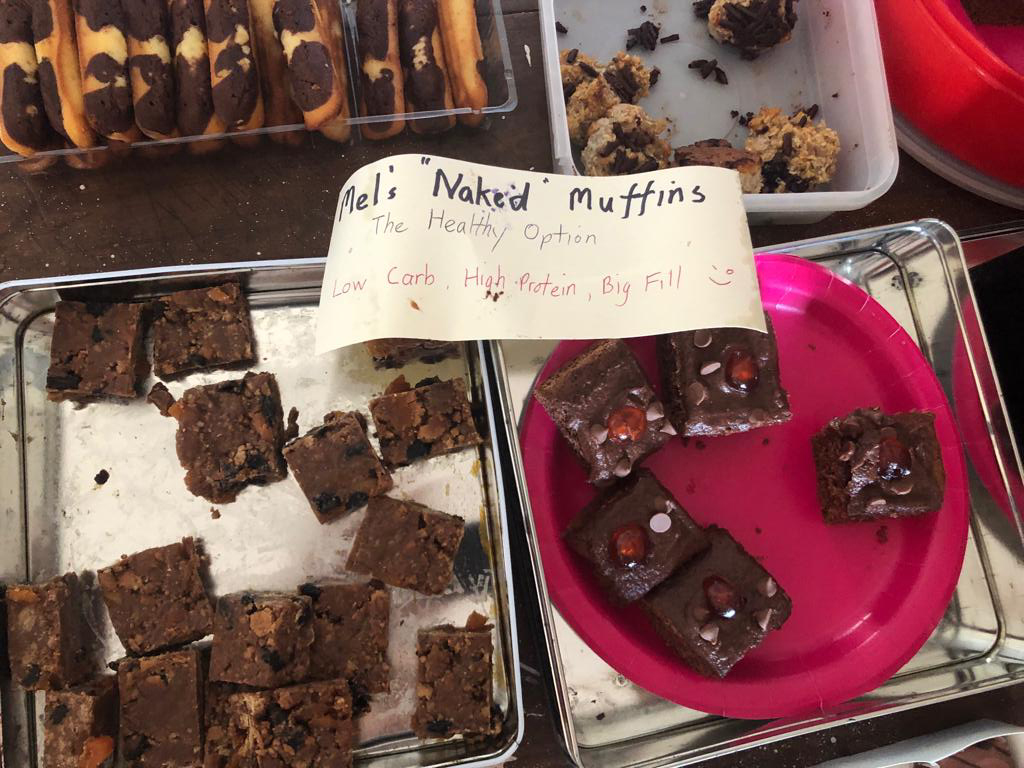 Mel's "Naked" Muffins
The Healthy Option
Low Carb, High Protein, Big Fill :)